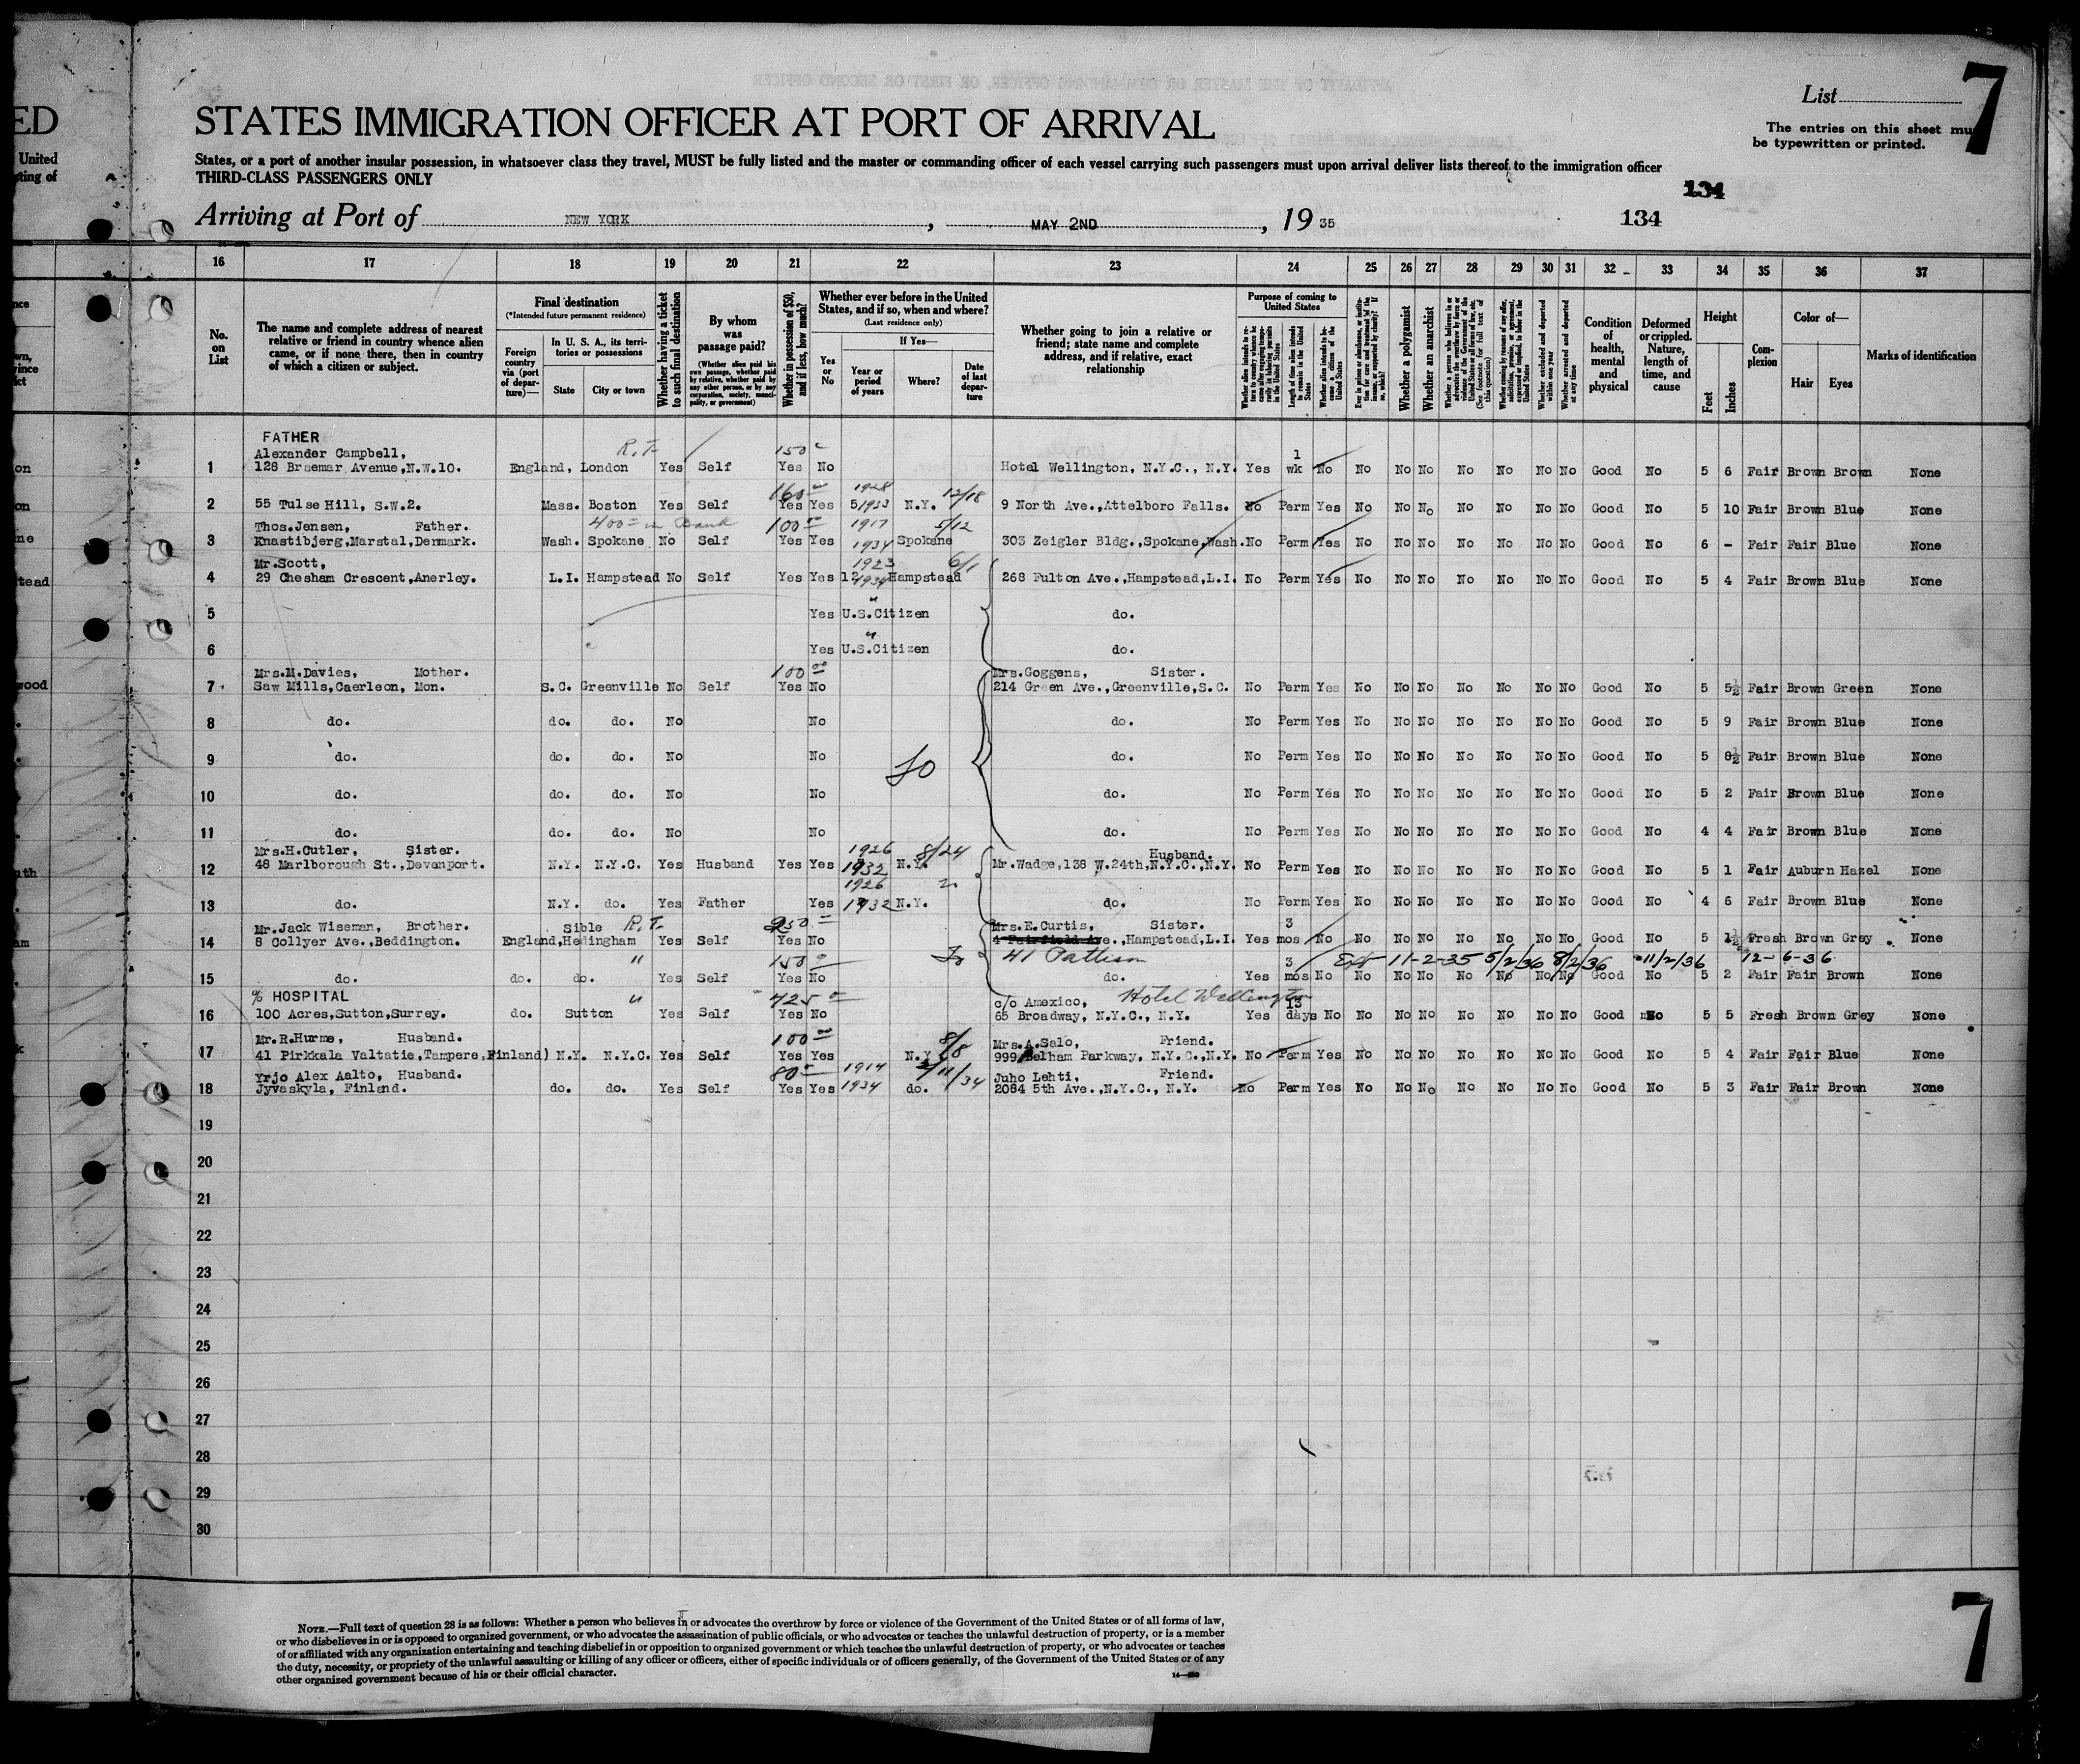 ED
United
List 7
STATES IMMIGRATION OFFICER AT PORT OF ARRIVAL
The entries on this sheet mu
be typewritten or printed.
States, or a port of another insular possession, in whatsoever class they travel, MUST be fully listed and the master or commanding officer of each vessel carrying such passengers must upon arrival deliver lists thereof to the immigration officer
THIRD-CLASS PASSENGERS ONLY
134
Arriving at Port of NEW YORK, MAY 2ND, 1935 134
16 17 18 19 20 21 22 23 24 25 26 27 28 29 30 31 32 33 34 35 36 37
No. on List
The name and complete address of nearest relative or friend in country whence alien came, or if none there, then in country of which a citizen or subject.
Final destination
(*Intended future permanent residence)
Foreign country via (port of departure)—
In U. S. A., its territories or possessions
State City or town
Whether having a ticket to such final destination
By whom was passage paid?
(Whether alien paid his own passage, whether paid by relative, whether paid by any other person, or by any corporation, society, municipality, or government)
Whether in possession of $50, and if less, how much?
Whether ever before in the United States, and if so, when and where?
(Last residence only)
Yes or No
If Yes—
Year or period of years
Where?
Date of last departure
Whether going to join a relative or friend; state name and complete address, and if relative, exact relationship
Purpose of coming to United States
Whether a polygamist
Whether an anarchist
Condition of health, mental and physical
Deformed or crippled. Nature, length of time, and cause
Height
Feet Inches
Complexion
Color of—
Hair Eyes
Marks of identification
FATHER
Alexander Campbell, R.T. 150 1
1 128 Braemar Avenue,N.W.10. England, London Yes Self Yes No Hotel Wellington, N.Y.C., N.Y. Yes wk No No No No No No No No Good No 5 6 Fair Brown Brown None
160 1928 12/18
2 55 Tulse Hill, S.W.2. Mass. Boston Yes Self Yes Yes 5/1933 N.Y. 9 North Ave.,Attelboro Falls. No Perm Yes No No No No No No No Good No 5 10 Fair Brown Blue None
Thos.Jensen, Father. 400 in Bank 100 1917 5/12
3 Knastibjerg,Marstal,Denmark. Wash. Spokane No Self Yes Yes 1934 Spokane 303 Zeigler Bldg.,Spokane,Wash. No Perm Yes No No No No No No No Good No 6 - Fair Fair Blue None
Mr.Scott, 1923 6/1
4 29 Chesham Crescent,Anerley. L.I. Hampstead No Self Yes Yes 1934 Hampstead 268 Fulton Ave.,Hampstead,L.I. No Perm Yes No No No No No No No Good No 5 4 Fair Brown Blue None
5 Yes U.S.Citizen do.
6 Yes U.S.Citizen do.
Mrs.M.Davies, Mother. 100 Mrs.Goggens, Sister.
7 Saw Mills,Caerleon, Mon. S.C. Greenville No Self Yes No 214 Green Ave.,Greenville,S.C. No Perm Yes No No No No No No No Good No 5 5½ Fair Brown Green None
8 do. do. do. No No do. No Perm Yes No No No No No No No Good No 5 9 Fair Brown Blue None
9 do. do. do. No No do. No Perm Yes No No No No No No No Good No 5 8½ Fair Brown Blue None
10 do. do. do. No No do. No Perm Yes No No No No No No No Good No 5 2 Fair Brown Blue None
11 do. do. do. No No do. No Perm Yes No No No No No No No Good No 4 4 Fair Brown Blue None
Mrs.H.Cutler, Sister. 1926 8/24 Husband.
12 48 Marlborough St.,Devonport. N.Y. N.Y.C. Yes Husband Yes Yes 1932 N.Y. Mr.Wadge,138 W.24th,N.Y.C.,N.Y. No Perm Yes No No No No No No No Good No 5 1 Fair Auburn Hazel None
1926
13 do. N.Y. do. Yes Father Yes 1932 N.Y. do. No Perm Yes No No No No No No No Good No 4 6 Fair Brown Blue None
Mr.Jack Wiseman, Brother. Sible R.T. 250 Mrs.E.Curtis, Sister. 3
14 8 Collyer Ave.,Beddington. England,Hedingham Yes Self Yes No 4 Fairfield Ave.,Hampstead,L.I. Yes mos No No No No No No No No Good No 5 1½ Fresh Brown Grey None
" 150 41 Pattison 3 Ext 11-2-35 5/2/36 8/2/36 11/2/36 12-6-36
15 do. do. do. Yes Self Yes No do. Yes mos No No No No No No No No Good No 5 2 Fair Fair Brown None
% HOSPITAL " 425 c/o Amexico, Hotel Wellington 13
16 100 Acres,Sutton,Surrey. do. Sutton Yes Self Yes No 65 Broadway, N.Y.C., N.Y. Yes days No No No No No No No No Good No 5 5 Fresh Brown Grey None
Mr.R.Hurme, Husband. 100 8/8 Mrs.A.Salo, Friend.
17 41 Pirkkala Valtatie,Tampere,Finland) N.Y. N.Y.C. Yes Self Yes Yes N.Y. 999 Pelham Parkway, N.Y.C.,N.Y. No Perm Yes No No No No No No No Good No 5 4 Fair Fair Blue None
Yrjo Alex Aalto, Husband. 80 1914 Juho Lehti, Friend.
18 Jyvaskyla, Finland. do. do. Yes Self Yes Yes 1934 do. 11/34 2084 5th Ave.,N.Y.C., N.Y. No Perm Yes No No No No No No No Good No 5 3 Fair Fair Brown None
19
20
21
22
23
24
25
26
27
28
29
30
NOTE.—Full text of question 28 is as follows: Whether a person who believes in or advocates the overthrow by force or violence of the Government of the United States or of all forms of law,
or who disbelieves in or is opposed to organized government, or who advocates the assassination of public officials, or who advocates or teaches the unlawful destruction of property, or is a member
of or affiliated with any organization entertaining and teaching disbelief in or opposition to organized government or which teaches the unlawful destruction of property, or who advocates or teaches
the duty, necessity, or propriety of the unlawful assaulting or killing of any officer or officers, either of specific individuals or of officers generally, of the Government of the United States or of any
other organized government because of his or their official character.
7